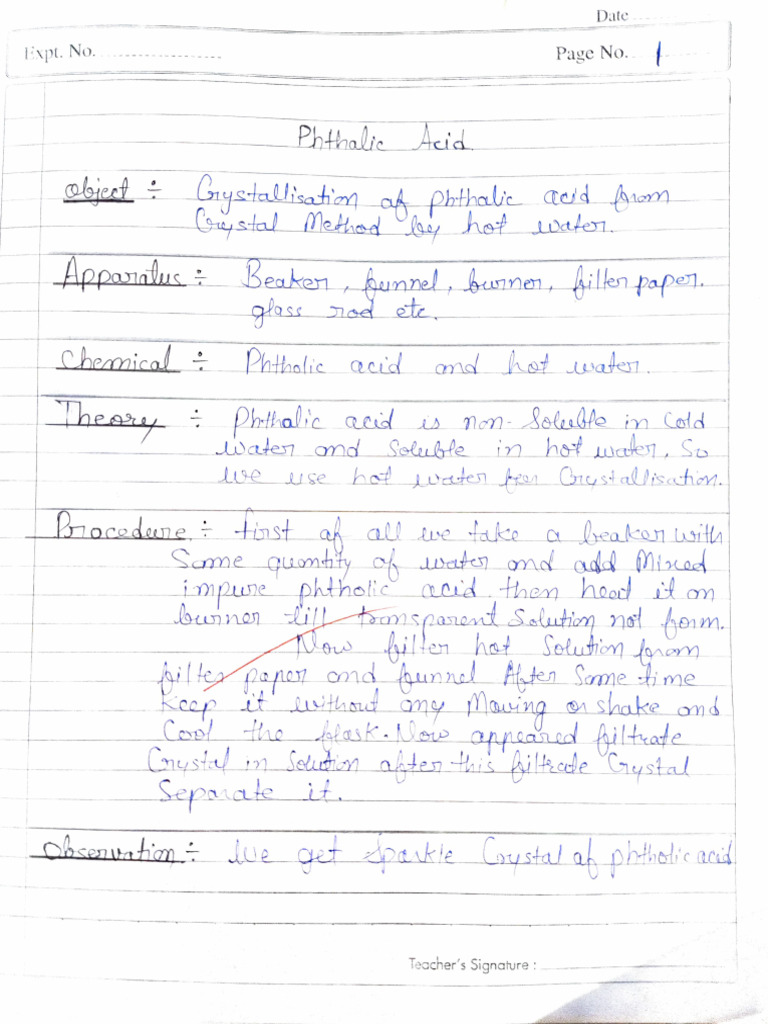 Date
Expt. No.
Page No. 1
Phthalic Acid
Object ÷ Crystallisation of phthalic acid from
Crystal Method by hot water.
Apparatus ÷ Beaker, funnel, burner, filter paper.
glass rod etc.
Chemical ÷ Phtholic acid and hot water.
Theory ÷ Phthalic acid is non-Soluble in Cold
water and soluble in hot water. So
we use hot water for Crystallisation.
Procedure ÷ first of all we take a beaker with
Some quantity of water and add Mixed
impure phtholic acid then head it on
burner till transparent Solution not form.
Now filter hot Solution from
filter paper and funnel After Some time
Keep it without any Moving or shake and
Cool the flask. Now appeared filtrate
Crystal in solution after this filtrade Crystal
Separate it.
Observation ÷ We get sparkle Crystal of phtholic acid
Teacher's Signature :